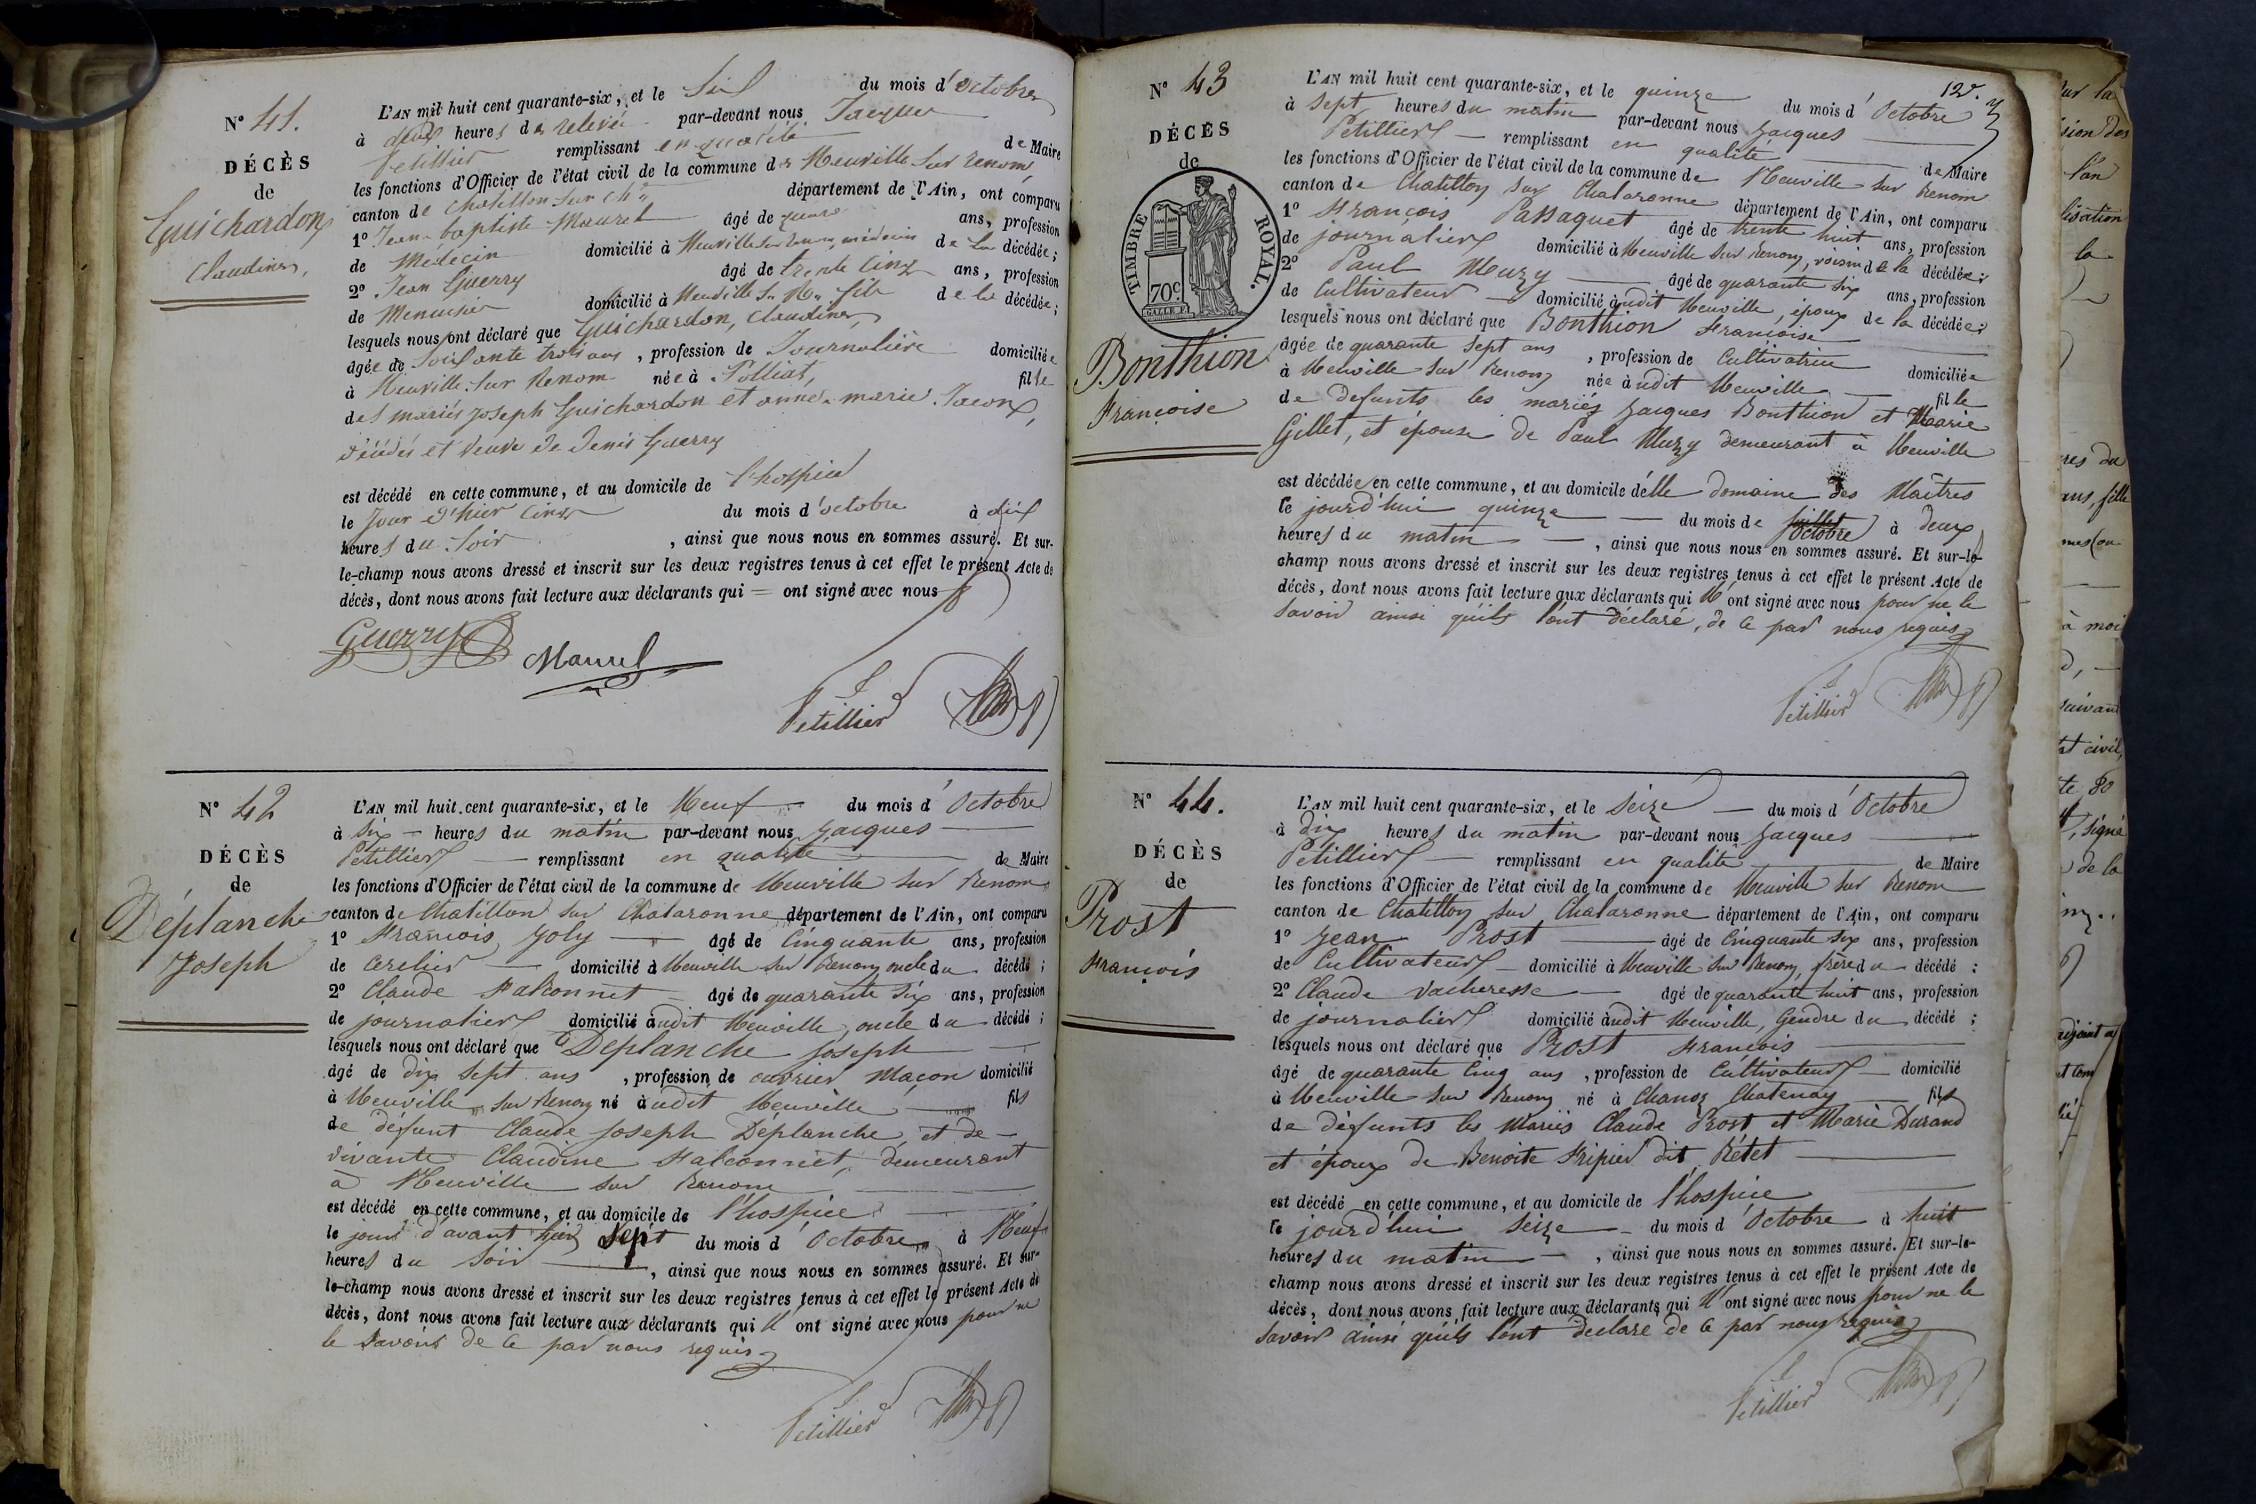 N° 41.
DÉCÈS
de
Guichardon
Claudine,
L'AN mil huit cent quarante-six, et le Six du mois d'octobre
à deux heures de relevée par-devant nous Jacques
Petillier remplissant en qualité de Maire
les fonctions d'Officier de l'état civil de la commune de Neuville sur renom
canton de chatillon sur ch.ne département de l'Ain, ont comparu
1° Jean-baptiste Manrel âgé de ans, profession
de Médecin domicilié à Neuville sur Renom, médecin de la décédée ;
2° Jean Guerry âgé de trente cinq ans, profession
de Menuisier domicilié à Neuville S. R. fils de la décédée ;
lesquels nous ont déclaré que Guichardon, Claudine,
âgée de Soixante trois ans, profession de Journalière domiciliée
à Neuville sur Renom née à Polliat, fille
des mariés Joseph Guichardon et anne-marie Jacon,
décédés et veuve de Denis Guerry
est décédé en cette commune, et au domicile de l'hospice
le Jour d'hier cinq du mois d'octobre à dix
heures du Soir, ainsi que nous nous en sommes assuré. Et sur-
le-champ nous avons dressé et inscrit sur les deux registres tenus à cet effet le présent Acte de
décès, dont nous avons fait lecture aux déclarants qui = ont signé avec nous
Guerry Manrel
Petillier
N° 42
DÉCÈS
de
Déplanche
Joseph
L'AN mil huit cent quarante-six, et le Neuf du mois d'Octobre
à Six heures du matin par-devant nous Jacques
Petillier remplissant en qualité de Maire
les fonctions d'Officier de l'état civil de la commune de Neuville sur Renom
canton de Chatillon sur Chalaronne département de l'Ain, ont comparu
1° François Joly âgé de Cinquante ans, profession
de Cerclier domicilié à Neuville sur Renom, oncle du décédé ;
2° Claude Falconnet âgé de quarante six ans, profession
de journalier domicilié audit Neuville, oncle du décédé ;
lesquels nous ont déclaré que Déplanche Joseph
âgé de dix sept ans, profession de ouvrier Maçon domicilié
à Neuville sur Renom né audit Neuville fils
de défunt Claude Joseph Déplanche, et de
vivante Claudine Falconnet, demeurant
à Neuville sur Renom
est décédé en cette commune, et au domicile de l'hospice
le jour d'avant hier sept du mois d'Octobre à Neuf
heures du Soir, ainsi que nous nous en sommes assuré. Et sur-
le-champ nous avons dressé et inscrit sur les deux registres tenus à cet effet le présent Acte de
décès, dont nous avons fait lecture aux déclarants qui n'ont signé avec nous pour ne
le savoir de ce par nous requis
Petillier
125.
N° 43
DÉCÈS
de
TIMBRE ROYAL.
70c.
Bonthion
Françoise
L'AN mil huit cent quarante-six, et le quinze du mois d'Octobre
à sept heures du matin par-devant nous Jacques
Petillier remplissant en qualité de Maire
les fonctions d'Officier de l'état civil de la commune de Neuville sur Renom
canton de Chatillon sur Chalaronne département de l'Ain, ont comparu
1° François Passaquet âgé de trente huit ans, profession
de journalier domicilié à Neuville sur Renom, voisin de la décédée ;
2° Paul Muzy âgé de quarante six ans, profession
de Cultivateur domicilié audit Neuville, époux de la décédée ;
lesquels nous ont déclaré que Bonthion Françoise
âgée de quarante sept ans, profession de Cultivatrice domiciliée
à Neuville sur Renom née audit Neuville fille
de defunts les mariés Jacques Bonthion et Marie
Gillet, et épouse de Paul Muzy demeurant à Neuville
est décédée en cette commune, et au domicile d'elle domaine des Maîtres
le jourd'hui quinze du mois de juillet octobre à deux
heures du matin, ainsi que nous nous en sommes assuré. Et sur-le-
champ nous avons dressé et inscrit sur les deux registres tenus à cet effet le présent Acte de
décès, dont nous avons fait lecture aux déclarants qui N'ont signé avec nous pour ne le
savoir ainsi qu'ils l'ont déclaré, de ce par nous requis
Petillier
N° 44.
DÉCÈS
de
Prost
François
L'AN mil huit cent quarante-six, et le Seize du mois d'Octobre
à dix heures du matin par-devant nous Jacques
Petillier remplissant en qualité de Maire
les fonctions d'Officier de l'état civil de la commune de Neuville sur Renom
canton de Chatillon sur Chalaronne département de l'Ain, ont comparu
1° Jean Prost âgé de Cinquante six ans, profession
de Cultivateur domicilié à Neuville sur Renom, frère du décédé ;
2° Claude Vacheresse âgé de quarante huit ans, profession
de journalier domicilié audit Neuville, Gendre du décédé ;
lesquels nous ont déclaré que Prost François
âgé de quarante Cinq ans, profession de Cultivateur domicilié
à Neuville sur Renom né à Chanoz Chatenay fils
de défunts les Mariés Claude Prost et Marie Durand
et époux de Benoite Fripier dit Rétet
est décédé en cette commune, et au domicile de l'hospice
le jourd'hui Seize du mois d'Octobre à huit
heures du matin, ainsi que nous nous en sommes assuré. Et sur-le-
champ nous avons dressé et inscrit sur les deux registres tenus à cet effet le présent Acte de
décès, dont nous avons fait lecture aux déclarants qui N'ont signé avec nous pour ne le
savoir ainsi qu'ils l'ont déclaré de ce par nous requis
Petillier